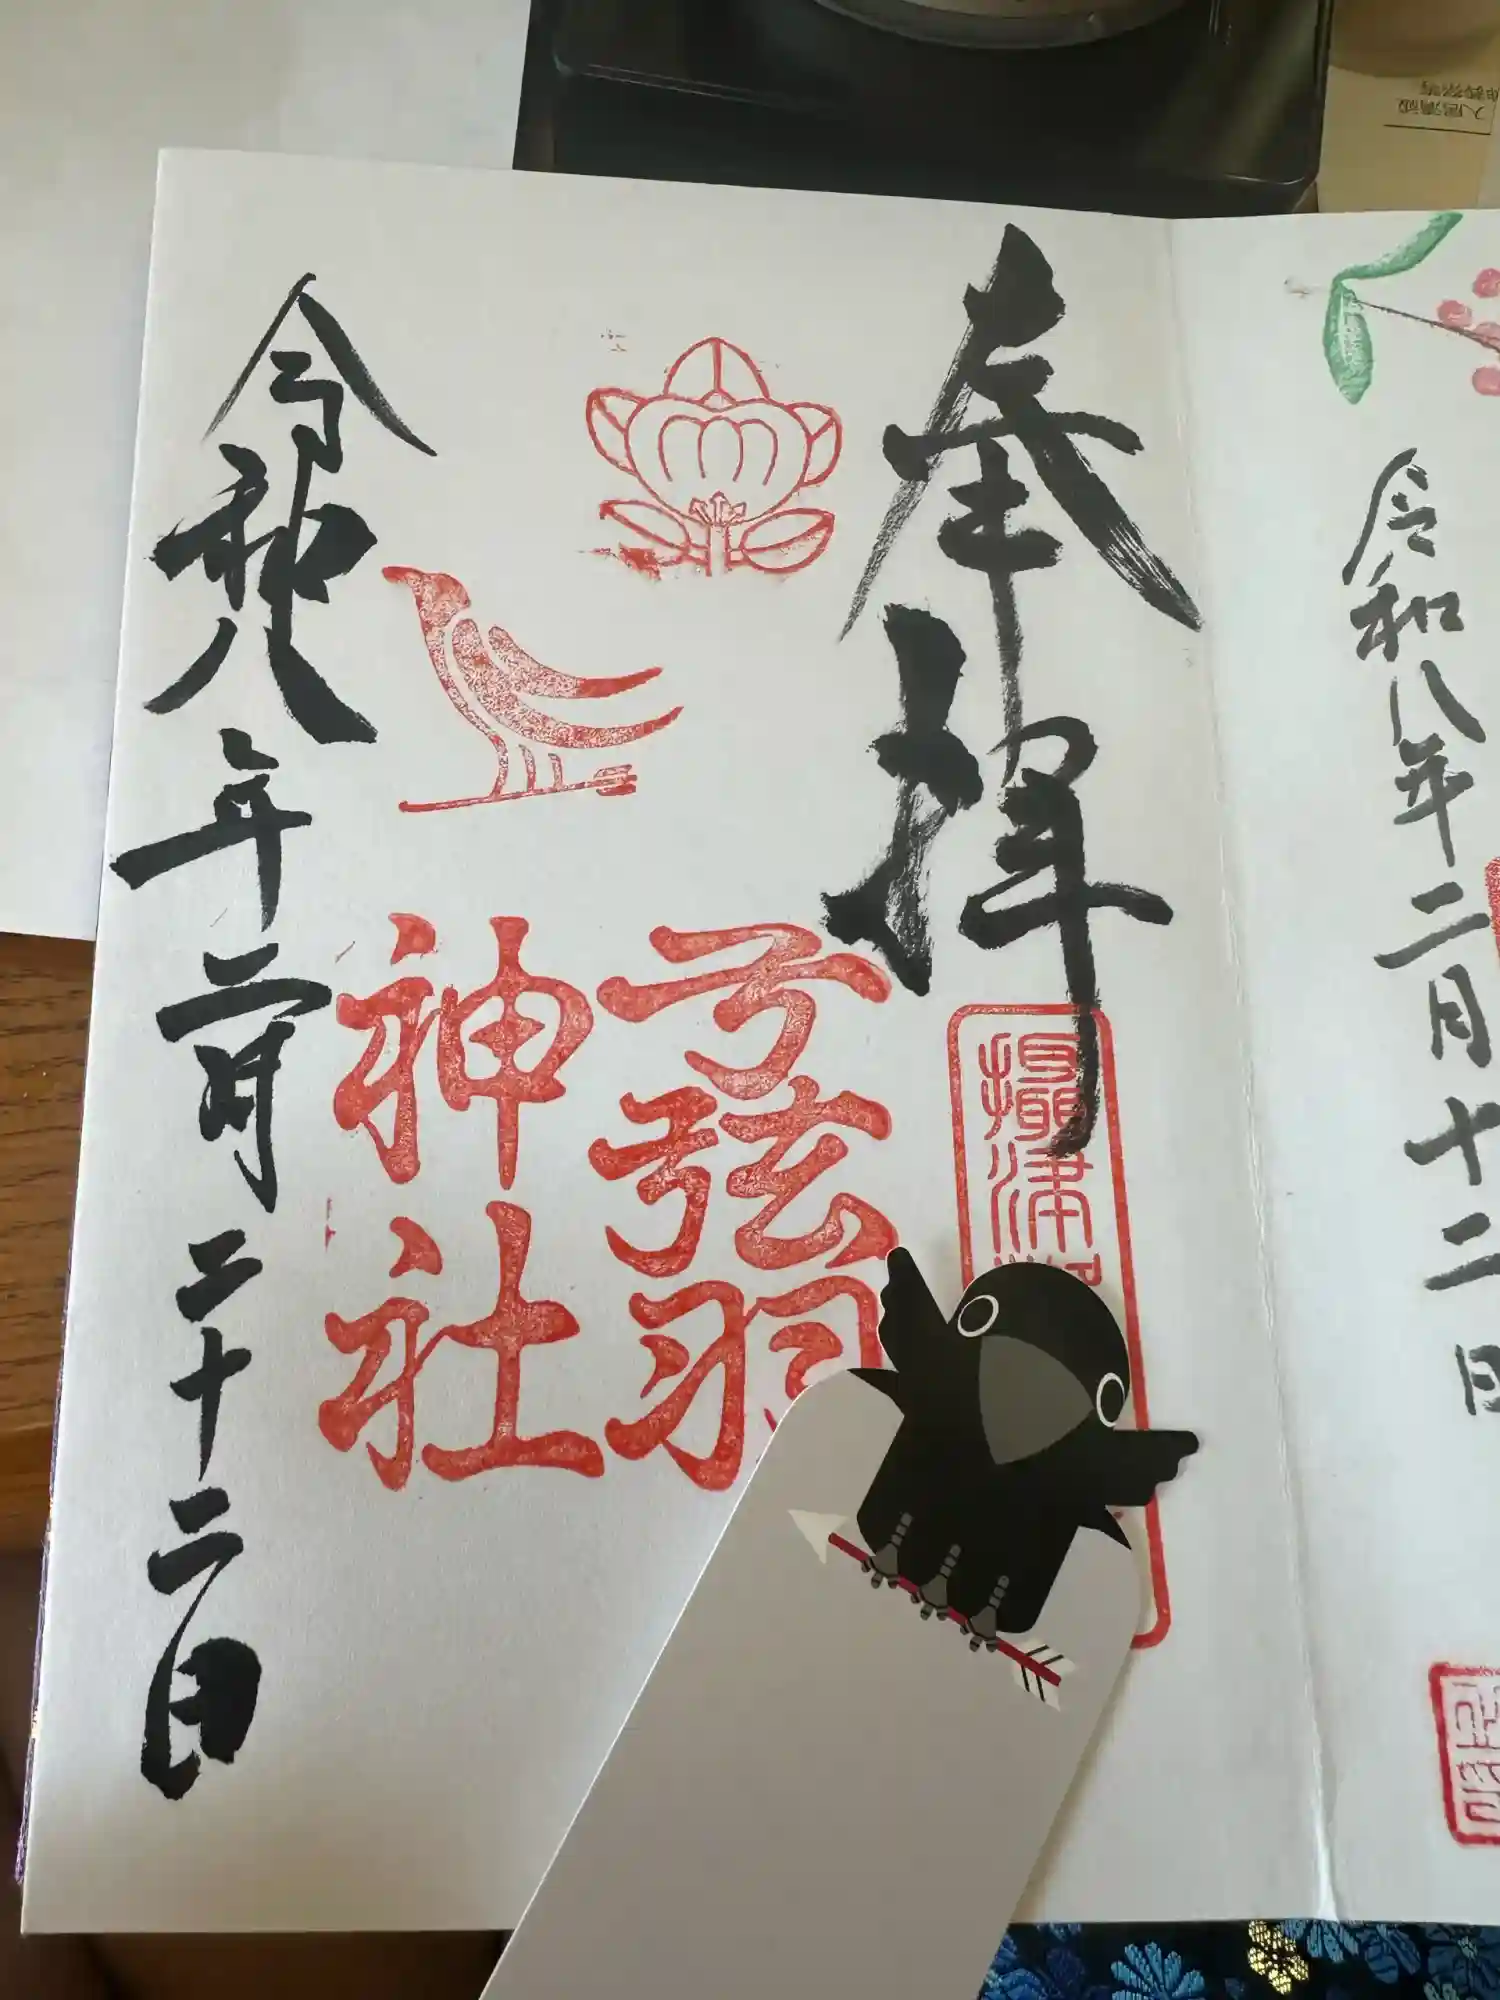 奉拝
摂津
弓弦羽
神社
令和八年二月二十二日
令和八年二月十二日